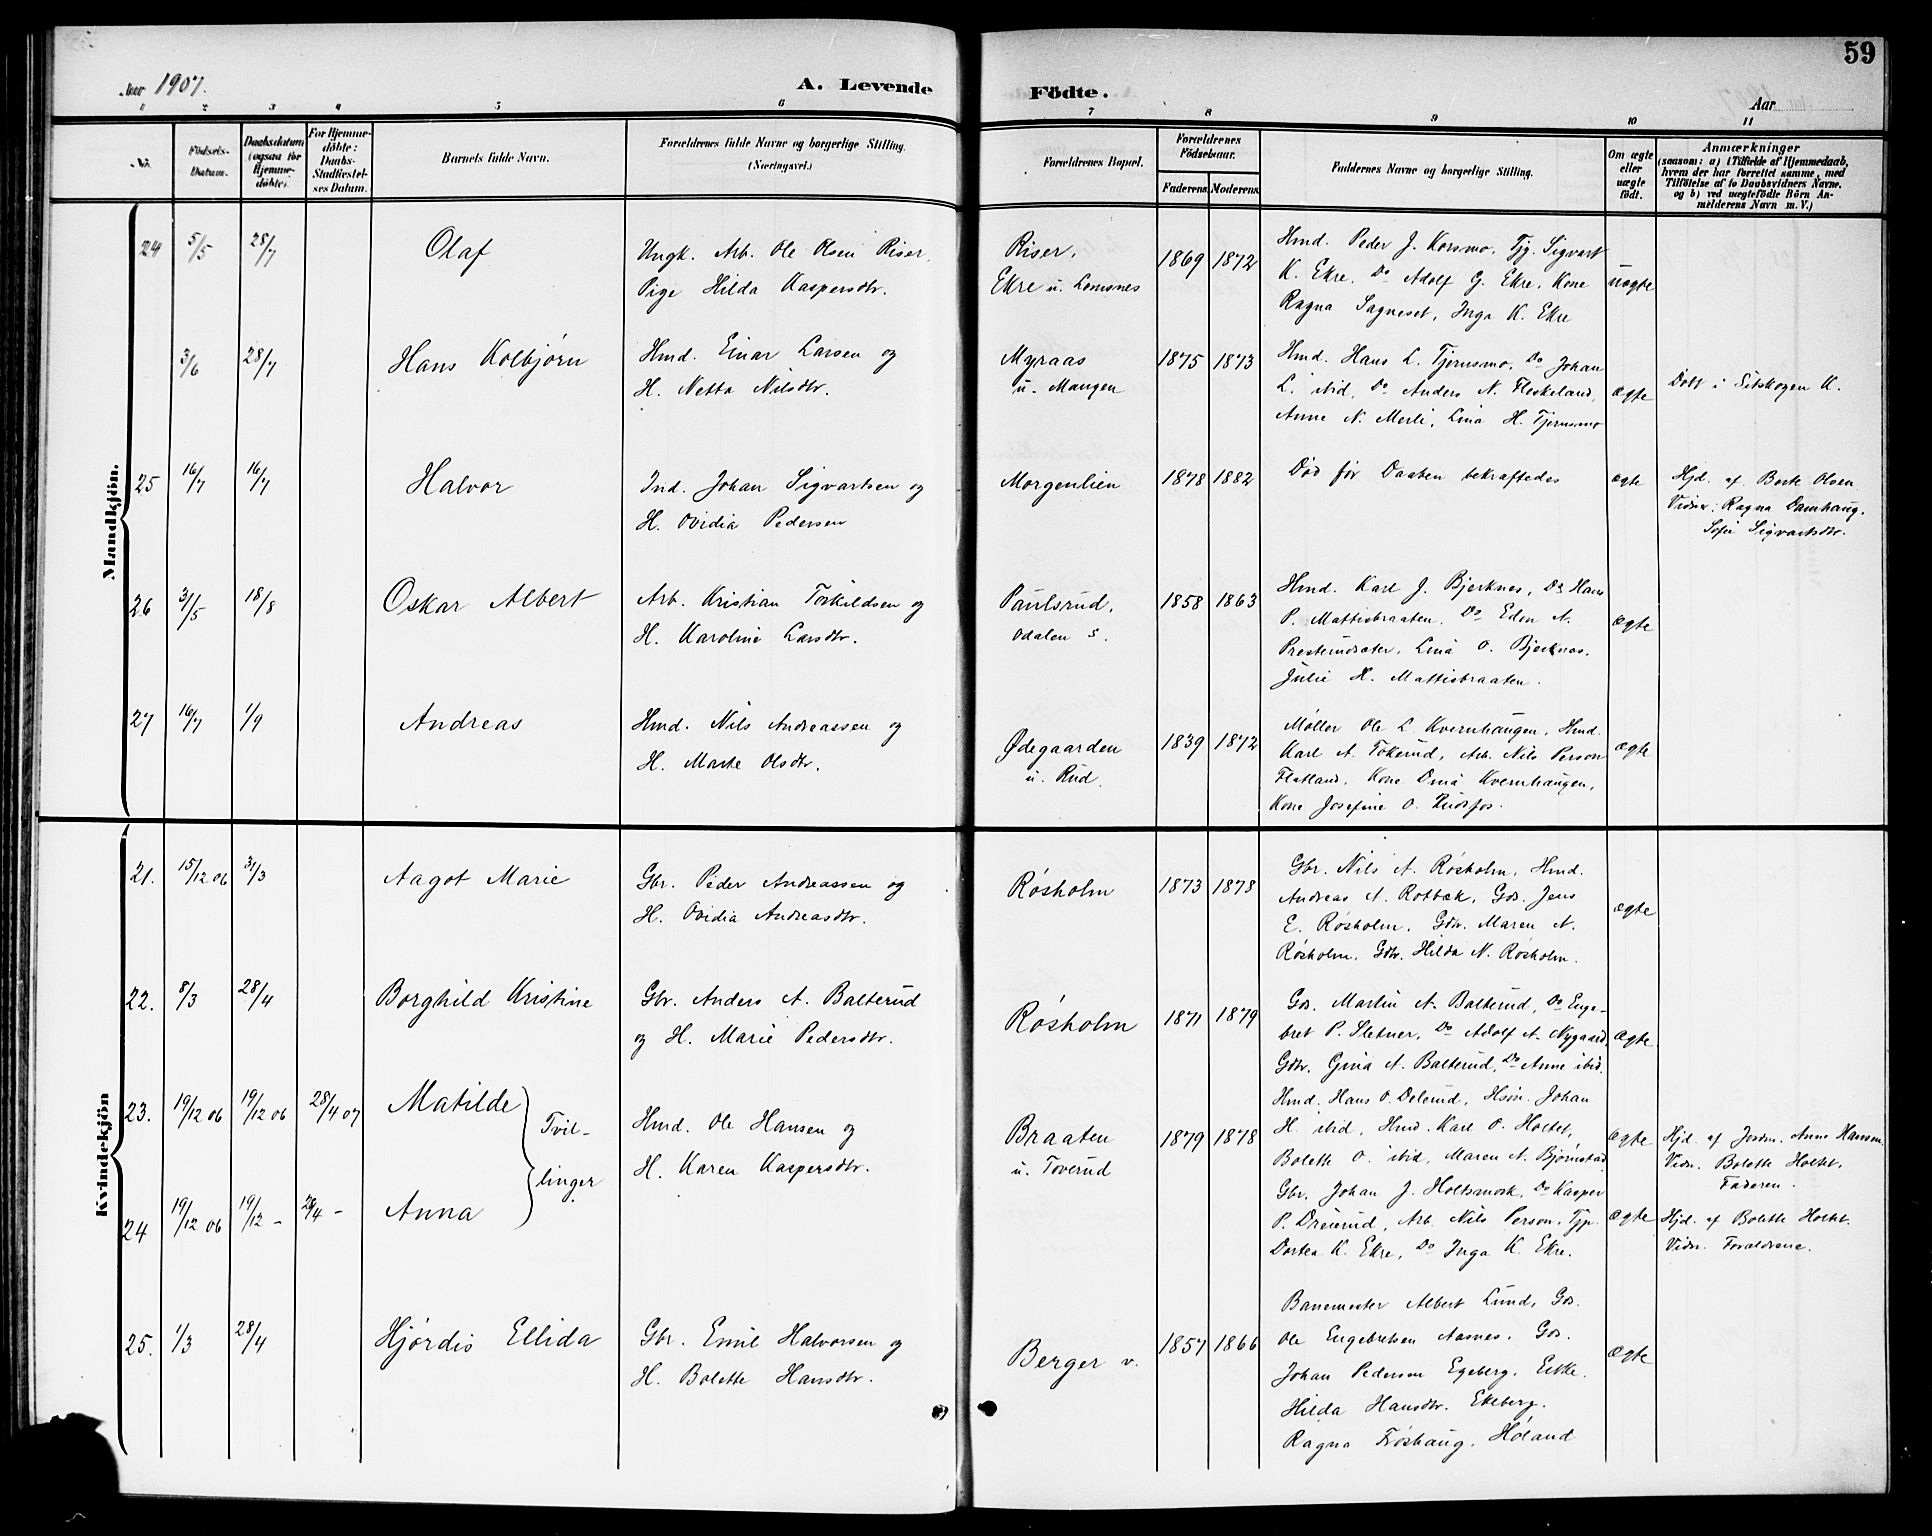 59
Aar 1907.
A. Levende Födte.
Aar
1 2 3 4 5 6 7 8 9 10 11
No.
Födsels-Datum.
Daabsdatum (ogsaa for Hjemme-döbte).
For Hjemme-döbte: Daabs-Stadfæstel-ses Datum.
Barnets fulde Navn.
Forældrenes fulde Navne og borgerlige Stilling. (Næringsvei.)
Forældrenes Bopæl.
Forældrenes Födselsaar.
Faderens Moderens
Faddernes Navne og borgerlige Stilling.
Om ægte eller uægte födt.
Anmærkninger
(saasom: a) i Tilfælde af Hjemmedaab, hvem der har forrettet samme, med Tilföielse af to Daabsvidners Navne. og b) ved uægtefödte Börn Anmelderens Navn m. V.)
Mandkjön.
24 5/5 28/7 Olaf
Ungk. Arb. Ole Olsen Riser.
Pige Hilda Kaspersdtr.
Riser,
Ekre u. Lomsnes
1869 1872
Hmd. Peder J. Korsmo. Tjg. Sigvart
K. Ekre. Do Adolf G. Ekre. Kone
Ragna Sagneset, Inga K. Ekre
uægte
3/6 28/7 Hans Kolbjørn
Hmd. Einar Larsen og
H. Netta Nilsdtr.
Myraas
u. Mangen
1875 1873
Hmd. Hans L. Tjernsmo. Do Johan
L. ibid, Do Anders N. Fleskeland,
Anne N. Merli, Lina H. Tjernsmo
ægte
Døbt i Setskogen K.
25 16/7 16/7 Halvor
Ind. Johan Sigvartsen og
H. Ovidia Pedersen
Morgenlien
1878 1882
Død før Daaben bekræftedes
ægte
Hjd. af Berte Olsen
Vidner: Ragna Damhaug.
Sofie Sigvartsdtr.
26 31/5 18/8 Oskar Albert
Arb. Kristian Torkildsen og
H. Karoline Larsdtr.
Paulsrud,
Odalen S.
1858 1863
Hmd. Karl J. Bjerknes, Do Hans
P. Mattisbraaten. Do Eden A.
Presterudsæter, Lina O. Bjerknes.
Julie H. Mattisbraaten.
ægte
27 16/7 1/9 Andreas
Hmd. Nils Andreassen og
H. Marte Olsdtr.
Ødegaarden
u. Rud.
1839 1872
Møller Ole L. Kvernhaugen, Hmd.
Karl A. Tokerud, Arb. Nils Person
Flatland, Kone Dina Kvernhaugen,
Kone Josefine O. Rudsfos.
ægte
Kvindekjön
21. 15/12 06 31/3 Aagot Marie
Gbr. Peder Andreassen og
H. Ovidia Andreasdtr.
Røsholm
1873 1878
Gbr. Nils A. Røsholm. Hmd.
Andreas A. Rotbæk, Gds. Jens
E. Røsholm. Gdtr. Maren N.
Røsholm, Gdtr. Hilda N. Røsholm.
ægte
22. 8/3 28/4 Borghild Kristine
Gbr. Anders A. Balterud
og H. Marie Pedersdtr.
Røsholm
1871 1879
Gds. Martin A. Balterud, Do Enge-
bret P. Sletner, Do Adolf A. Nygaard
Gdtr. Gina A. Balterud, Do Anne ibid.
ægte
23. 19/12 06 19/12 06 28/4 07 Matilde
Tvil-
linger
Hmd. Ole Hansen og
H. Karen Kaspersdtr.
Braaten
u. Toverud
1879 1878
Hmd. Hans O. Delerud, Hsøn. Johan
H. ibid, Hmd. Karl O. Holtet,
Bolette O. ibid, Maren A. Bjørnstad
ægte
Hjd. af Jordm. Anne Hansen
Vidn. Bolette Holtet,
Faderen.
24 19/12 06 19/12 - 28/4 - Anna
Gbr. Johan J. Holtsmosk, Do Kasper
P. Dreierud, Arb. Nils Person. Tjp.
Dortea K. Ekre, Do Inga K. Ekre.
ægte
Hjd. af Bolette Holtet.
Vidn. Forældrene.
25. 1/3 28/4 Hjørdis Ellida
Gbr. Emil Halvorsen og
H. Bolette Hansdtr.
Berger v.
1857 1866
Banemester Albert Lund, Gds.
Ole Engebretsen Aasnes, Gds.
Johan Pedersen Egeberg. Enke.
Hilda Hansdtr. Ekeberg.
Ragna Frøshaug, Høland
ægte